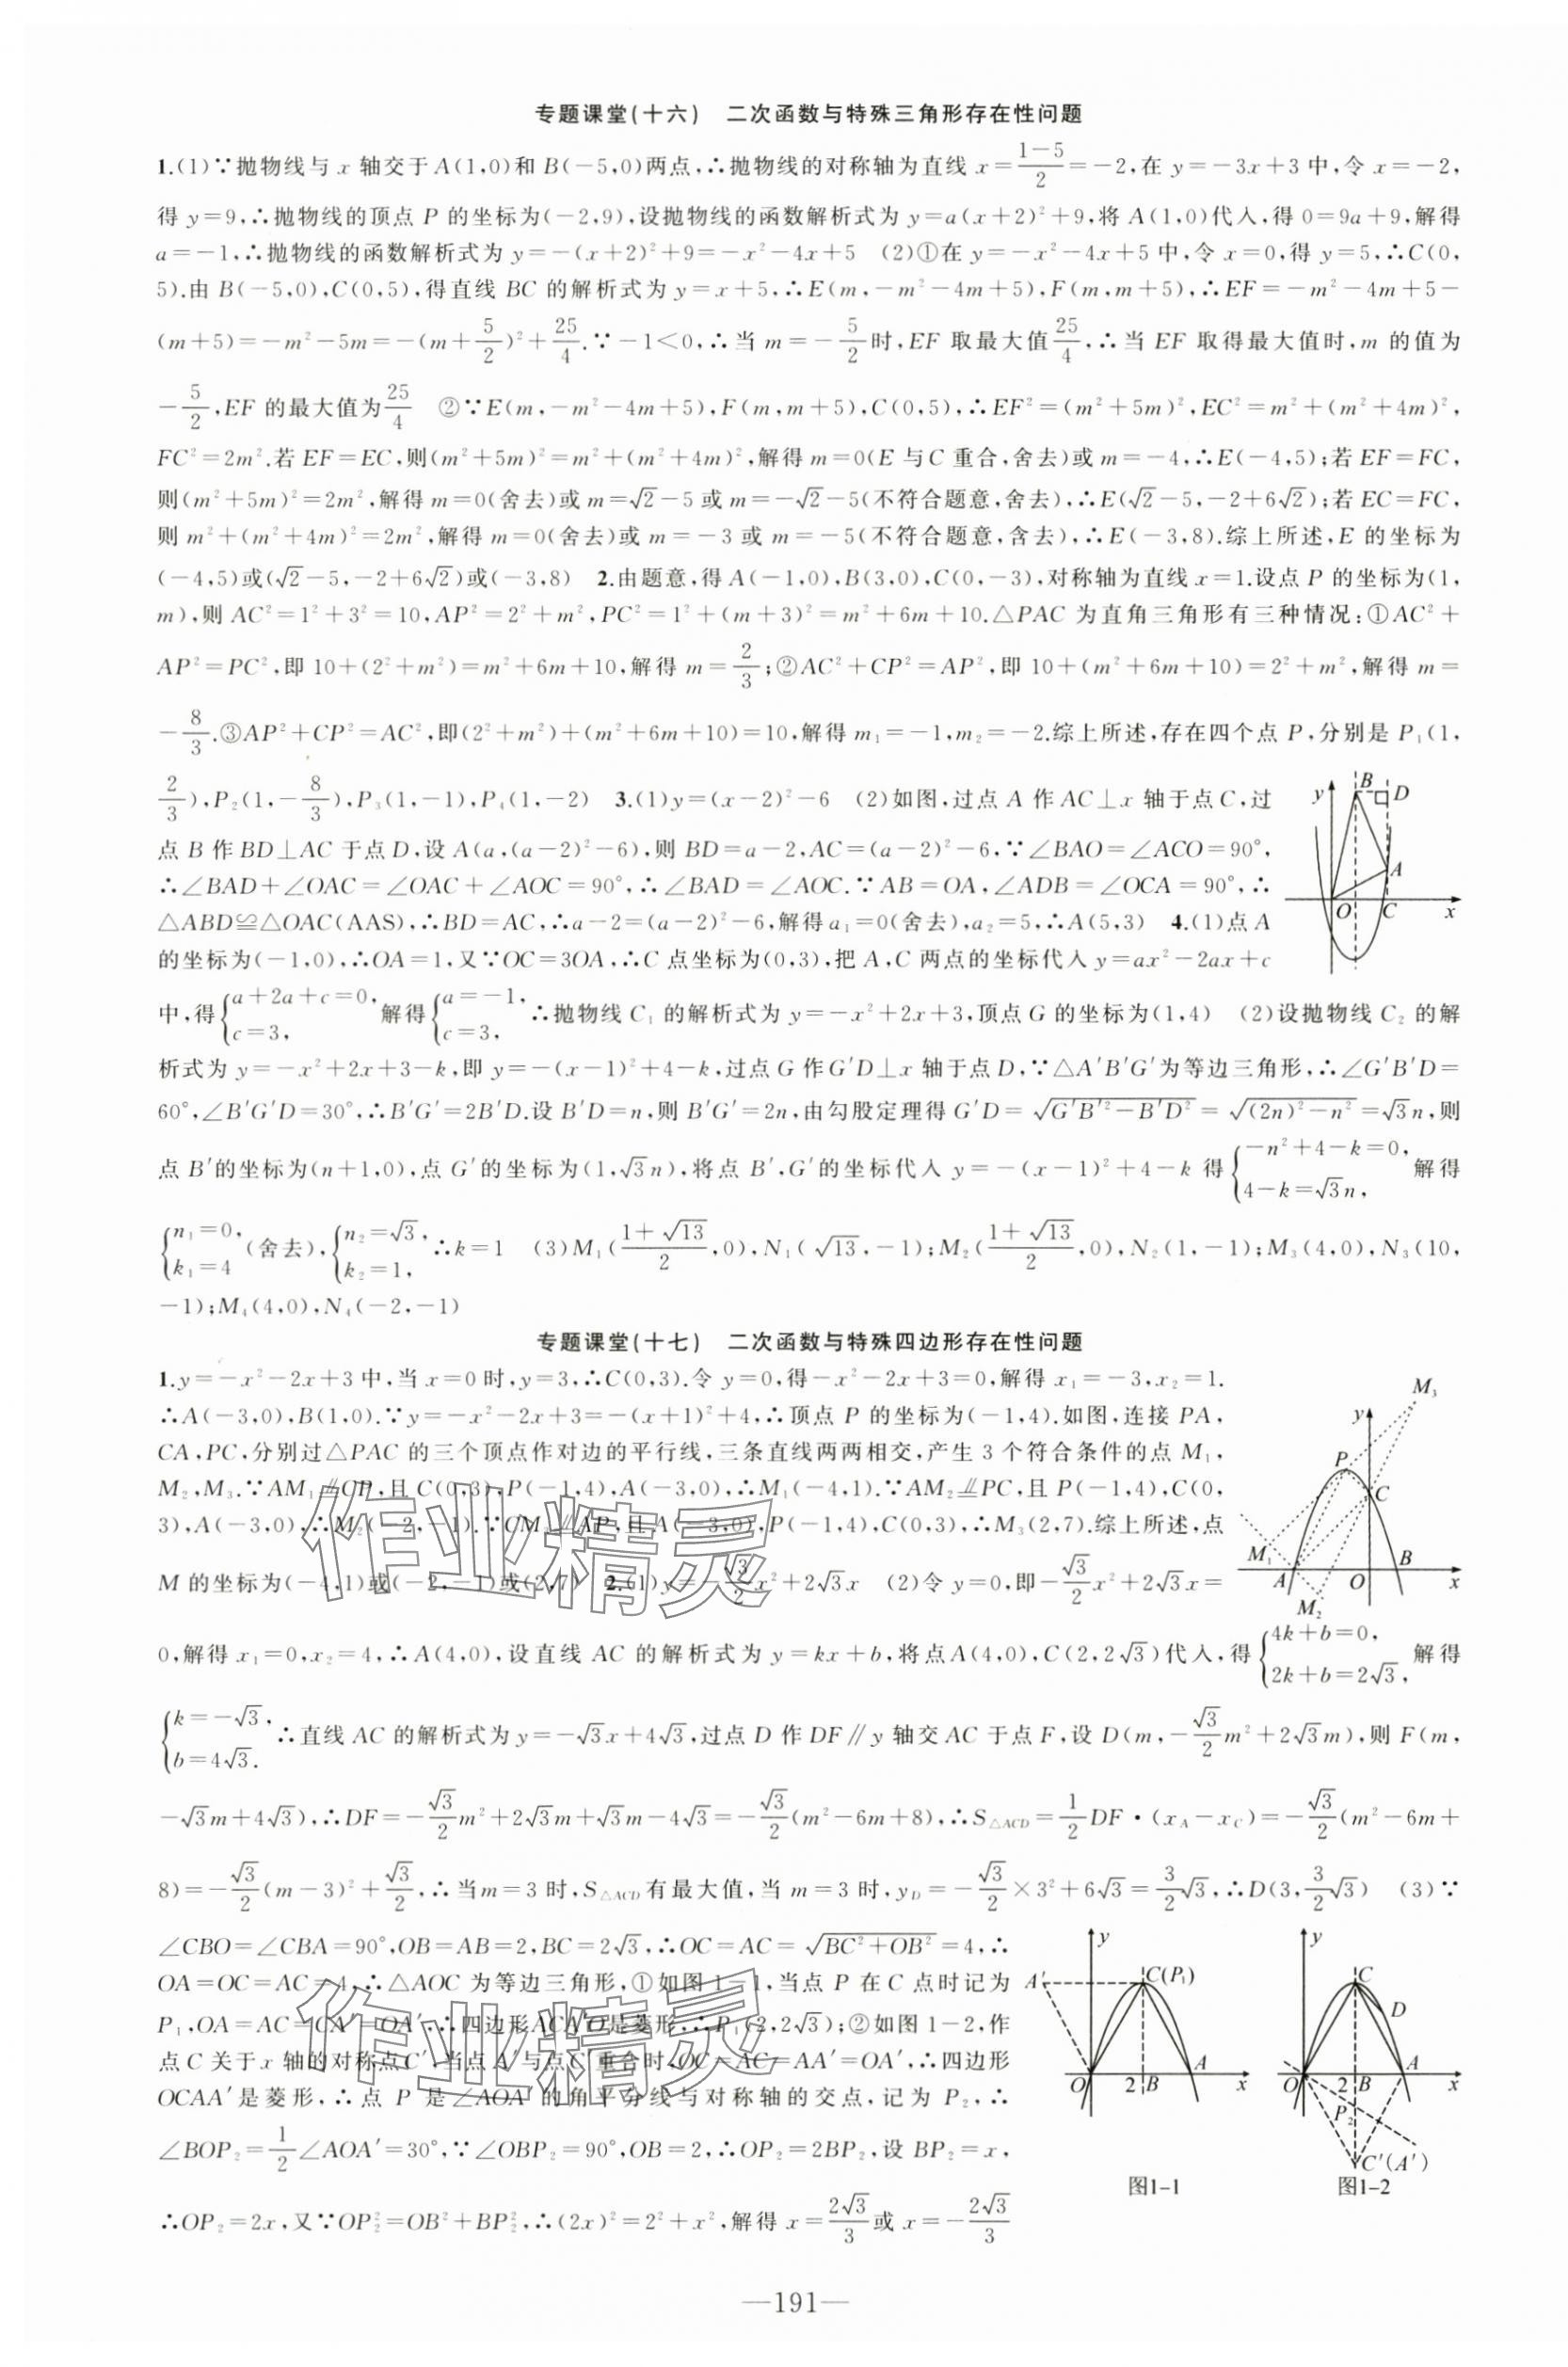 专题课堂(十六)　二次函数与特殊三角形存在性问题
1.(1)∵抛物线与 x 轴交于 A(1,0)和 B(-5,0)两点,∴抛物线的对称轴为直线 x=\frac{1-5}{2}=-2,在 y=-3x+3 中,令 x=-2,
得 y=9,∴抛物线的顶点 P 的坐标为(-2,9),设抛物线的函数解析式为 y=a(x+2)²+9,将 A(1,0)代入,得 0=9a+9,解得
a=-1,∴抛物线的函数解析式为 y=-(x+2)²+9=-x²-4x+5　(2)①在 y=-x²-4x+5 中,令 x=0,得 y=5,∴C(0,
5).由 B(-5,0),C(0,5),得直线 BC 的解析式为 y=x+5,∴E(m,-m²-4m+5),F(m,m+5),∴EF=-m²-4m+5-
(m+5)=-m²-5m=-(m+\frac{5}{2})²+\frac{25}{4}.∵-1<0,∴当 m=-\frac{5}{2}时,EF 取最大值\frac{25}{4},∴当 EF 取得最大值时,m 的值为
-\frac{5}{2},EF 的最大值为\frac{25}{4}　②∵E(m,-m²-4m+5),F(m,m+5),C(0,5),∴EF²=(m²+5m)²,EC²=m²+(m²+4m)²,
FC²=2m².若 EF=EC,则(m²+5m)²=m²+(m²+4m)²,解得 m=0(E 与 C 重合,舍去)或 m=-4,∴E(-4,5);若 EF=FC,
则(m²+5m)²=2m²,解得 m=0(舍去)或 m=√2-5 或 m=-√2-5(不符合题意,舍去),∴E(√2-5,-2+6√2);若 EC=FC,
则 m²+(m²+4m)²=2m²,解得 m=0(舍去)或 m=-3 或 m=-5(不符合题意,含去),∴E(-3,8).综上所述,E 的坐标为
(-4,5)或(√2-5,-2+6√2)或(-3,8)　2.由题意,得 A(-1,0),B(3,0),C(0,-3),对称轴为直线 x=1.设点 P 的坐标为(1,
m),则 AC²=1²+3²=10,AP²=2²+m²,PC²=1²+(m+3)²=m²+6m+10.△PAC 为直角三角形有三种情况:①AC²+
AP²=PC²,即 10+(2²+m²)=m²+6m+10,解得 m=\frac{2}{3};②AC²+CP²=AP²,即 10+(m²+6m+10)=2²+m²,解得 m=
-\frac{8}{3}.③AP²+CP²=AC²,即(2²+m²)+(m²+6m+10)=10,解得 m₁=-1,m₂=-2.综上所述,存在四个点 P,分别是 P₁(1,
\frac{2}{3}),P₂(1,-\frac{8}{3}),P₃(1,-1),P₄(1,-2)　3.(1)y=(x-2)²-6　(2)如图,过点 A 作 AC⊥x 轴于点 C,过
点 B 作 BD⊥AC 于点 D,设 A(a,(a-2)²-6),则 BD=a-2,AC=(a-2)²-6,∵∠BAO=∠ACO=90°,
∴∠BAD+∠OAC=∠OAC+∠AOC=90°,∴∠BAD=∠AOC.∵AB=OA,∠ADB=∠OCA=90°,∴
△ABD≌△OAC(AAS),∴BD=AC,∴a-2=(a-2)²-6,解得 a₁=0(舍去),a₂=5,∴A(5,3)　4.(1)点 A
的坐标为(-1,0),∴OA=1,又∵OC=3OA,∴C 点坐标为(0,3),把 A,C 两点的坐标代入 y=ax²-2ax+c
y
B
D
A
O
C
x
中,得{a+2a+c=0, c=3, 解得{a=-1, c=3, ∴抛物线 C₁ 的解析式为 y=-x²+2x+3,顶点 G 的坐标为(1,4)　(2)设抛物线 C₂ 的解
析式为 y=-x²+2x+3-k,即 y=-(x-1)²+4-k,过点 G 作 G′D⊥x 轴于点 D,∵△A′B′G′为等边三角形,∴∠G′B′D=
60°,∠B′G′D=30°,∴B′G′=2B′D.设 B′D=n,则 B′G′=2n,由勾股定理得 G′D=√(G′B′²-B′D²)=√((2n)²-n²)=√3n,则
点 B′的坐标为(n+1,0),点 G′的坐标为(1,√3n),将点 B′,G′的坐标代入 y=-(x-1)²+4-k 得{-n²+4-k=0, 4-k=√3n, 解得
{n₁=0, k₁=4 (舍去),{n₂=√3, k₂=1, ∴k=1　(3)M₁(\frac{1+√13}{2},0),N₁(√13,-1);M₂(\frac{1+√13}{2},0),N₂(1,-1);M₃(4,0),N₃(10,
-1);M₄(4,0),N₄(-2,-1)
专题课堂(十七)　二次函数与特殊四边形存在性问题
1.y=-x²-2x+3 中,当 x=0 时,y=3,∴C(0,3).令 y=0,得-x²-2x+3=0,解得 x₁=-3,x₂=1.
∴A(-3,0),B(1,0).∵y=-x²-2x+3=-(x+1)²+4,∴顶点 P 的坐标为(-1,4).如图,连接 PA,
CA,PC,分别过△PAC 的三个顶点作对边的平行线,三条直线两两相交,产生 3 个符合条件的点 M₁,
M₂,M₃.∵AM₁⫽CP,且 C(0,3),P(-1,4),A(-3,0),∴M₁(-4,1).∵AM₂⫽PC,且 P(-1,4),C(0,
3),A(-3,0),∴M₂(-2,-1).∵CM₃⫽AP,且 A(-3,0),P(-1,4),C(0,3),∴M₃(2,7).综上所述,点
M 的坐标为(-4,1)或(-2,-1)或(2,7)　2.(1)y=-\frac{√3}{2}x²+2√3x　(2)令 y=0,即-\frac{√3}{2}x²+2√3x=
M₃
y
P
C
M₁
A
O
B
x
M₂
0,解得 x₁=0,x₂=4,∴A(4,0),设直线 AC 的解析式为 y=kx+b,将点 A(4,0),C(2,2√3)代入,得{4k+b=0, 2k+b=2√3, 解得
{k=-√3, b=4√3. ∴直线 AC 的解析式为 y=-√3x+4√3,过点 D 作 DF∥y 轴交 AC 于点 F,设 D(m,-\frac{√3}{2}m²+2√3m),则 F(m,
-√3m+4√3),∴DF=-\frac{√3}{2}m²+2√3m+√3m-4√3=-\frac{√3}{2}(m²-6m+8),∴S△ACD=\frac{1}{2}DF·(x_A-x_C)=-\frac{√3}{2}(m²-6m+
8)=-\frac{√3}{2}(m-3)²+\frac{√3}{2},∴当 m=3 时,S△ACD有最大值,当 m=3 时,y_D=-\frac{√3}{2}×3²+6√3=\frac{3}{2}√3,∴D(3,\frac{3}{2}√3)　(3)∵
∠CBO=∠CBA=90°,OB=AB=2,BC=2√3,∴OC=AC=√(BC²+OB²)=4,∴
OA=OC=AC=4,∴△AOC 为等边三角形,①如图 1-1,当点 P 在 C 点时记为
P₁,OA=AC=CA′=OA′,∴四边形ACA′O是菱形,∴P₁(2,2√3);②如图 1-2,作
点 C 关于 x 轴的对称点 C′,当点 A′与点 C′重合时,OC=AC=AA′=OA′,∴四边形
OCAA′是菱形,∴点 P 是∠AOA′的角平分线与对称轴的交点,记为 P₂,∴
∠BOP₂=\frac{1}{2}∠AOA′=30°,∵∠OBP₂=90°,OB=2,∴OP₂=2BP₂,设 BP₂=x,
∴OP₂=2x,又∵OP₂²=OB²+BP₂²,∴(2x)²=2²+x²,解得 x=\frac{2√3}{3}或 x=-\frac{2√3}{3}
y
A′
C(P₁)
O
2
B
A
x
图1-1
y
C
D
O
2
B
A
x
P₂
C′(A′)
图1-2
作业精灵
作业精灵
—191—